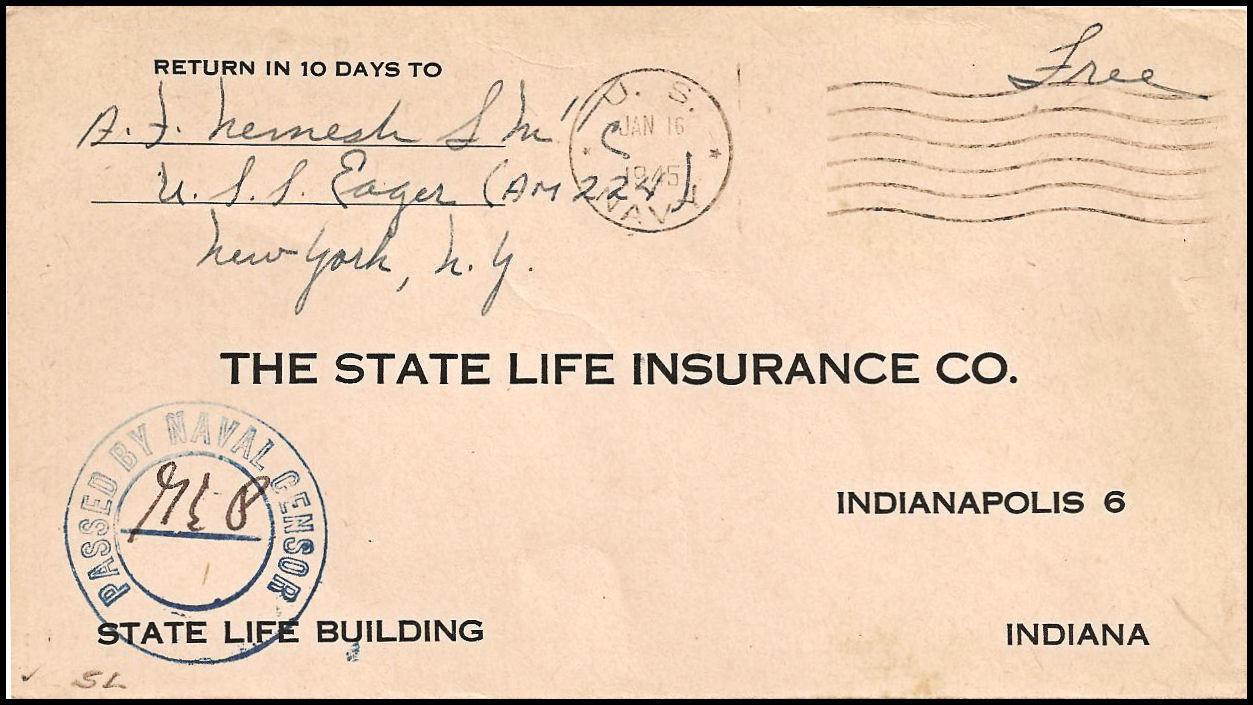 RETURN IN 10 DAYS TO
Free
A. F. Nemesh SM"C
U.S.S. Eager (AM 224)
New York, N.Y.
U. S.
JAN 16
1945
NAVY
THE STATE LIFE INSURANCE CO.
PASSED BY NAVAL CENSOR
INDIANAPOLIS 6
STATE LIFE BUILDING
INDIANA
SL